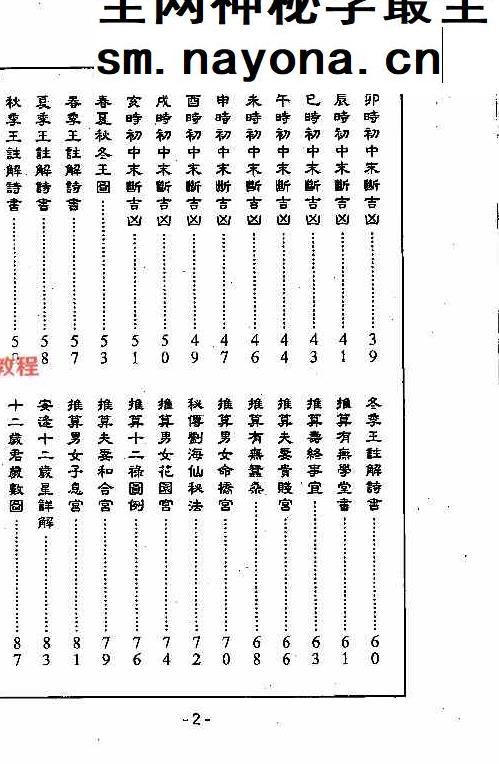 全网神秘学最全
sm.nayona.cn
卯時初中末斷吉凶 39
辰時初中末斷吉凶 41
巳時初中末斷吉凶 43
午時初中末斷吉凶 44
未時初中末斷吉凶 46
申時初中末斷吉凶 47
酉時初中末斷吉凶 49
戌時初中末斷吉凶 50
亥時初中末斷吉凶 51
春夏秋冬王圖 53
春季王註解詩書 57
夏季王註解詩書 58
秋季王註解詩書 5
教程
冬季王註解詩書 60
推算有無學堂書 61
推算壽終事宜 63
推算夫妻貴賤宮 66
推算有無蠶桑 68
推算男女命橋宮 70
秘傳劉海仙秘法 72
推算男女花園宮 74
推算十二祿圖例 76
推算夫妻和合宮 79
推算男女子息宮 81
安逢十二歲星詳解 83
十二歲君歲數圖 87
-2-